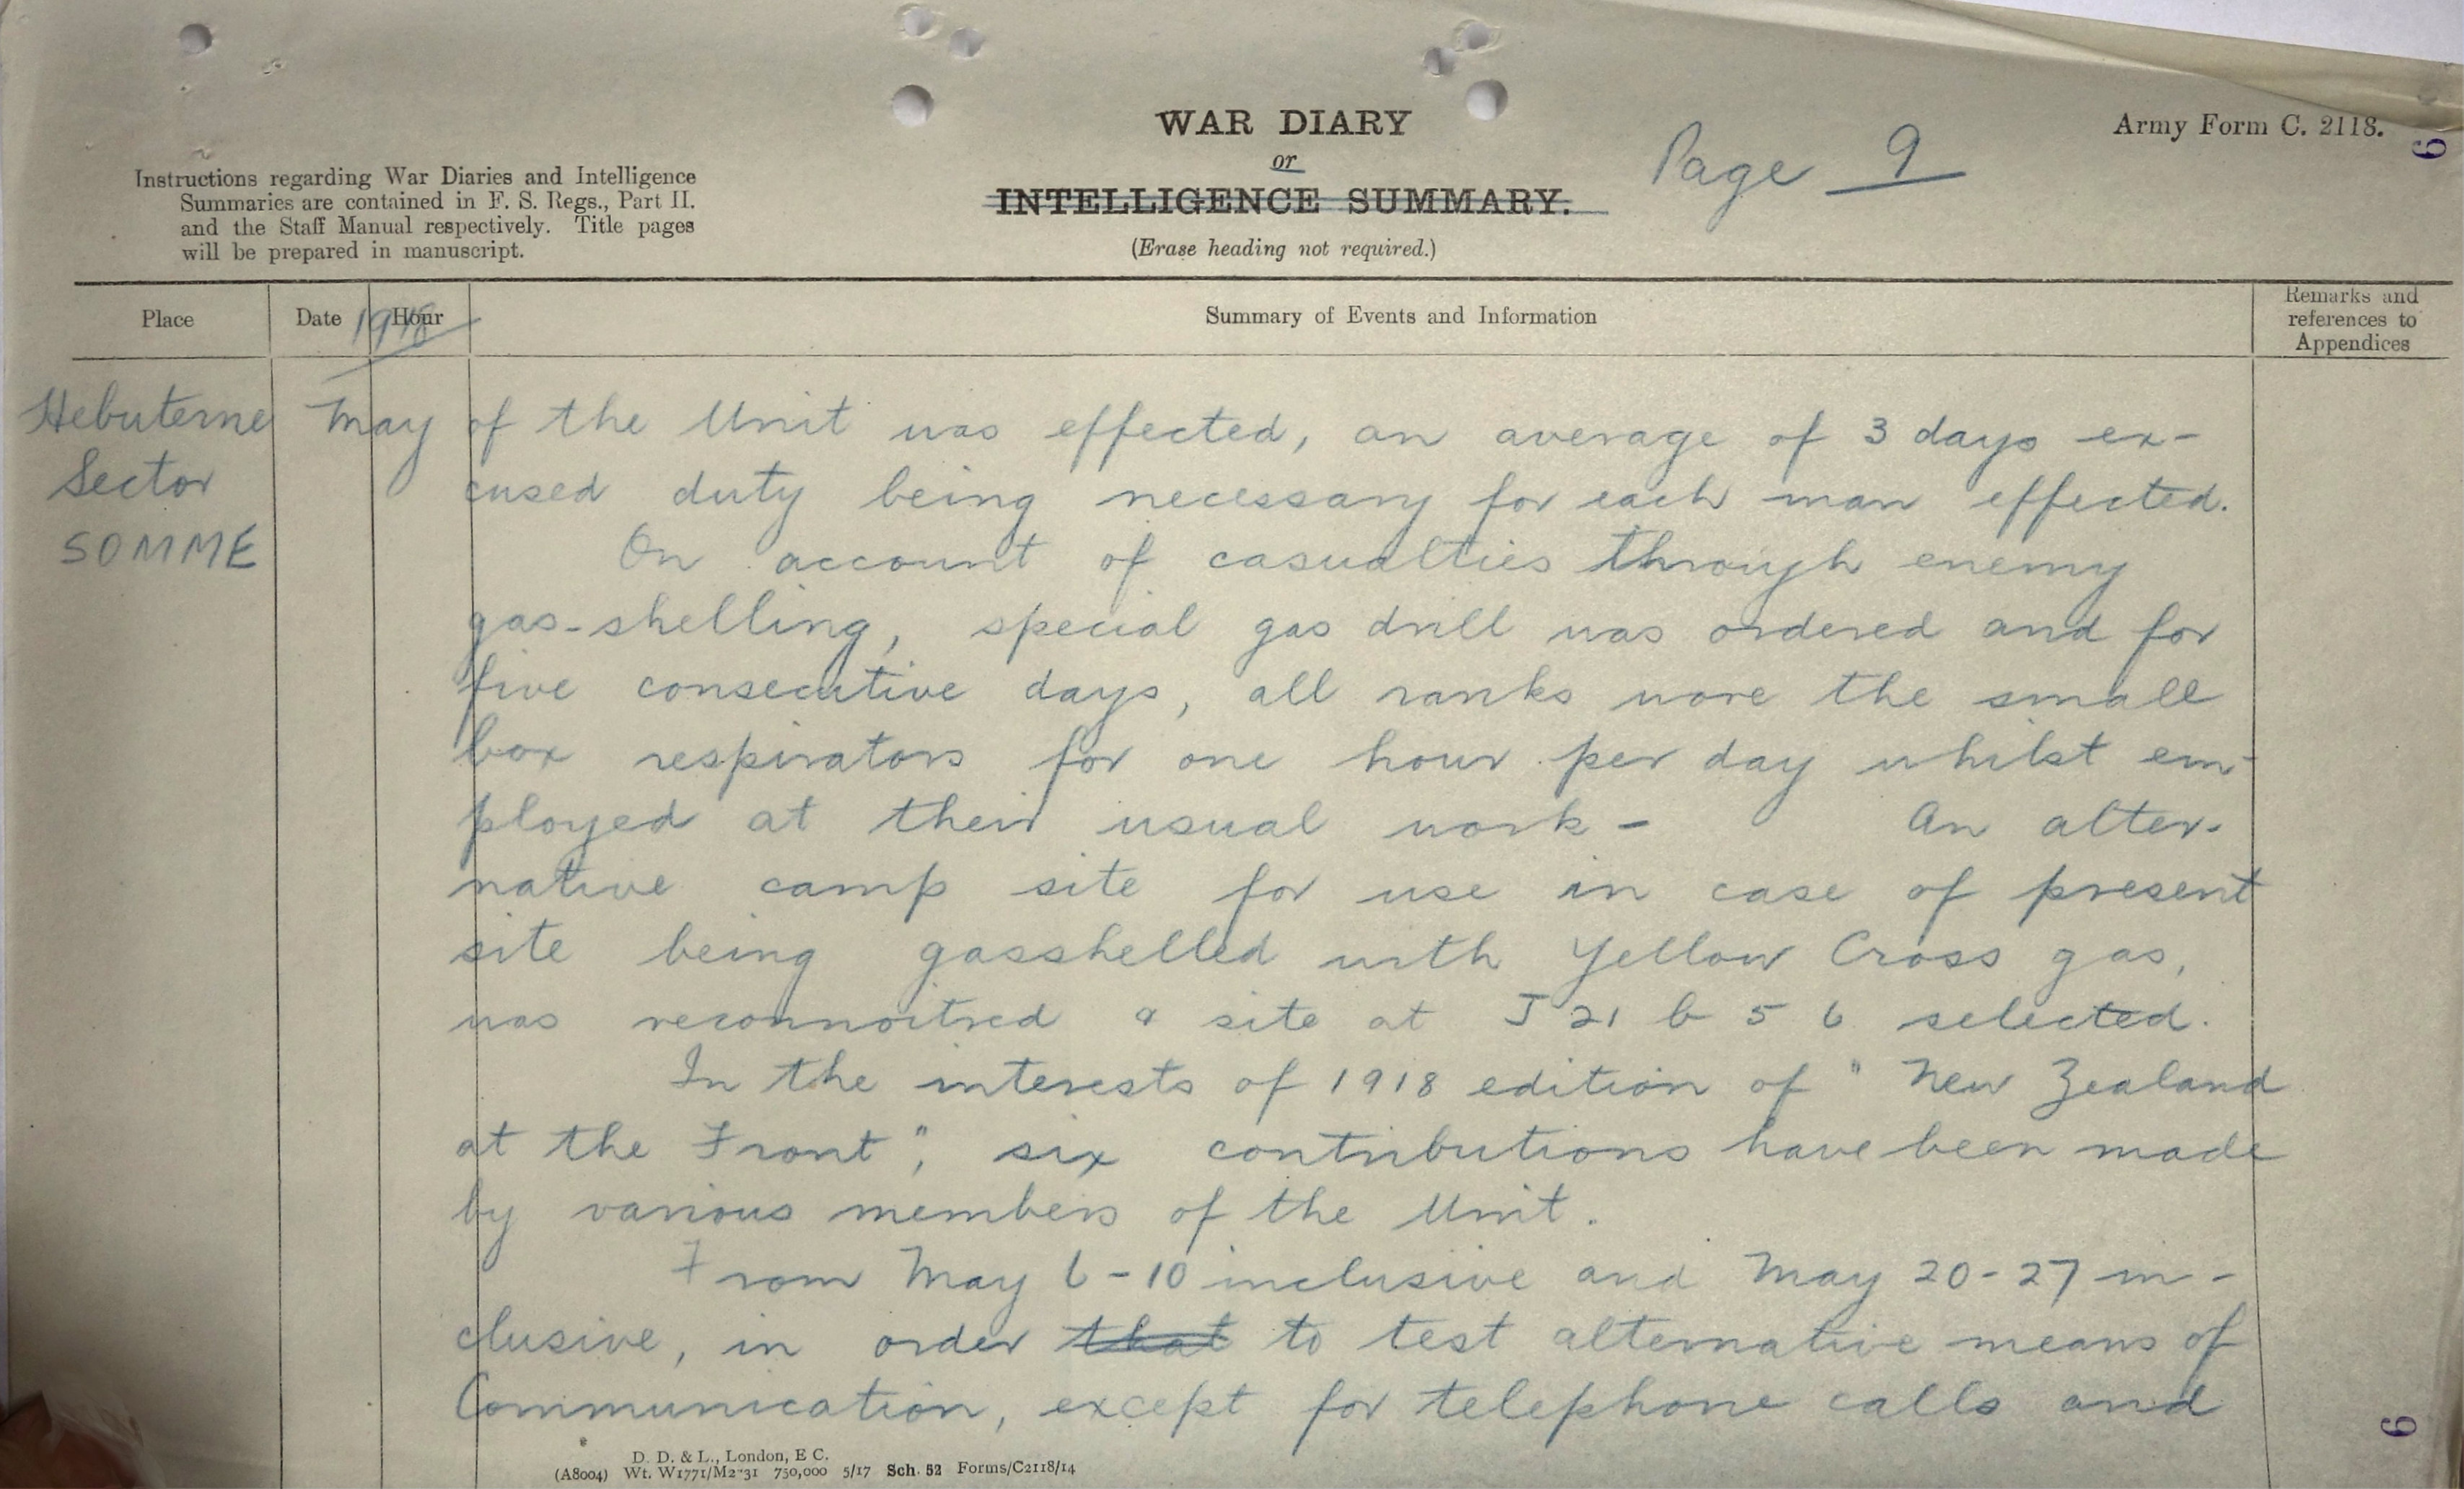 WAR DIARY
or
INTELLIGENCE SUMMARY.
(Erase heading not required.)
Page 9
Army Form C. 2118.
Instructions regarding War Diaries and Intelligence
Summaries are contained in F. S. Regs., Part II.
and the Staff Manual respectively. Title pages
will be prepared in manuscript.
Place
Date
Hour
1918
Summary of Events and Information
Remarks and
references to
Appendices
Hebuterne
Sector
SOMME
May
of the Unit was effected, an average of 3 days ex-
cused duty being necessary for each man effected.
On account of casualties through enemy
gas-shelling, special gas drill was ordered and for
five consecutive days, all ranks wore the small
box respirators for one hour per day whilst em-
ployed at their usual work - An alter-
native camp site for use in case of present
site being gasshelled with Yellow Cross gas,
was reconnoitred & site at J 21 b 5 6 selected.
In the interests of 1918 edition of "New Zealand
at the Front", six contributions have been made
by various members of the Unit.
From May 6-10 inclusive and May 20-27 in-
clusive, in order that to test alternative means of
Communication, except for telephone calls and
D. D. & L., London, E C.
(A8004) Wt. W1771/M2 31 750,000 5/17 Sch. 52 Forms/C2118/14
9
9